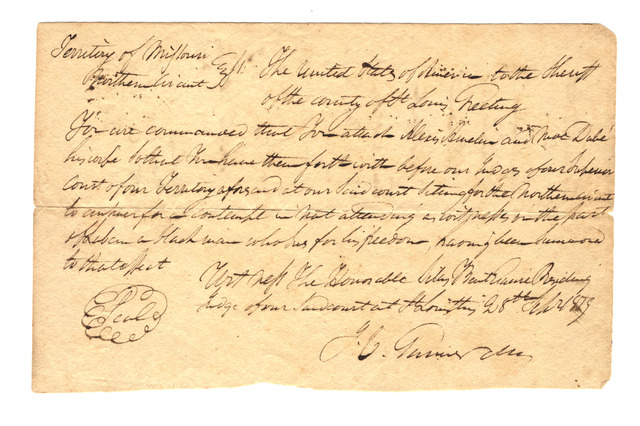 Territory of Missouri
Northern Circuit
The United States of America to the Sheriff
of the county of St Louis Greeting
You are commanded that You attach and
his so that You have them forth with before our Judges of our Superior
Court of our Territory aforesaid at our said court sitting for the Northern circuit
to answer for a contempt in not attending as witnesses on the part
of a black man who sues for his freedom, having been summoned
to that effect
Witness The Honorable Presiding
Judge of our said court at St Louis this 28th
Seal
J. C.